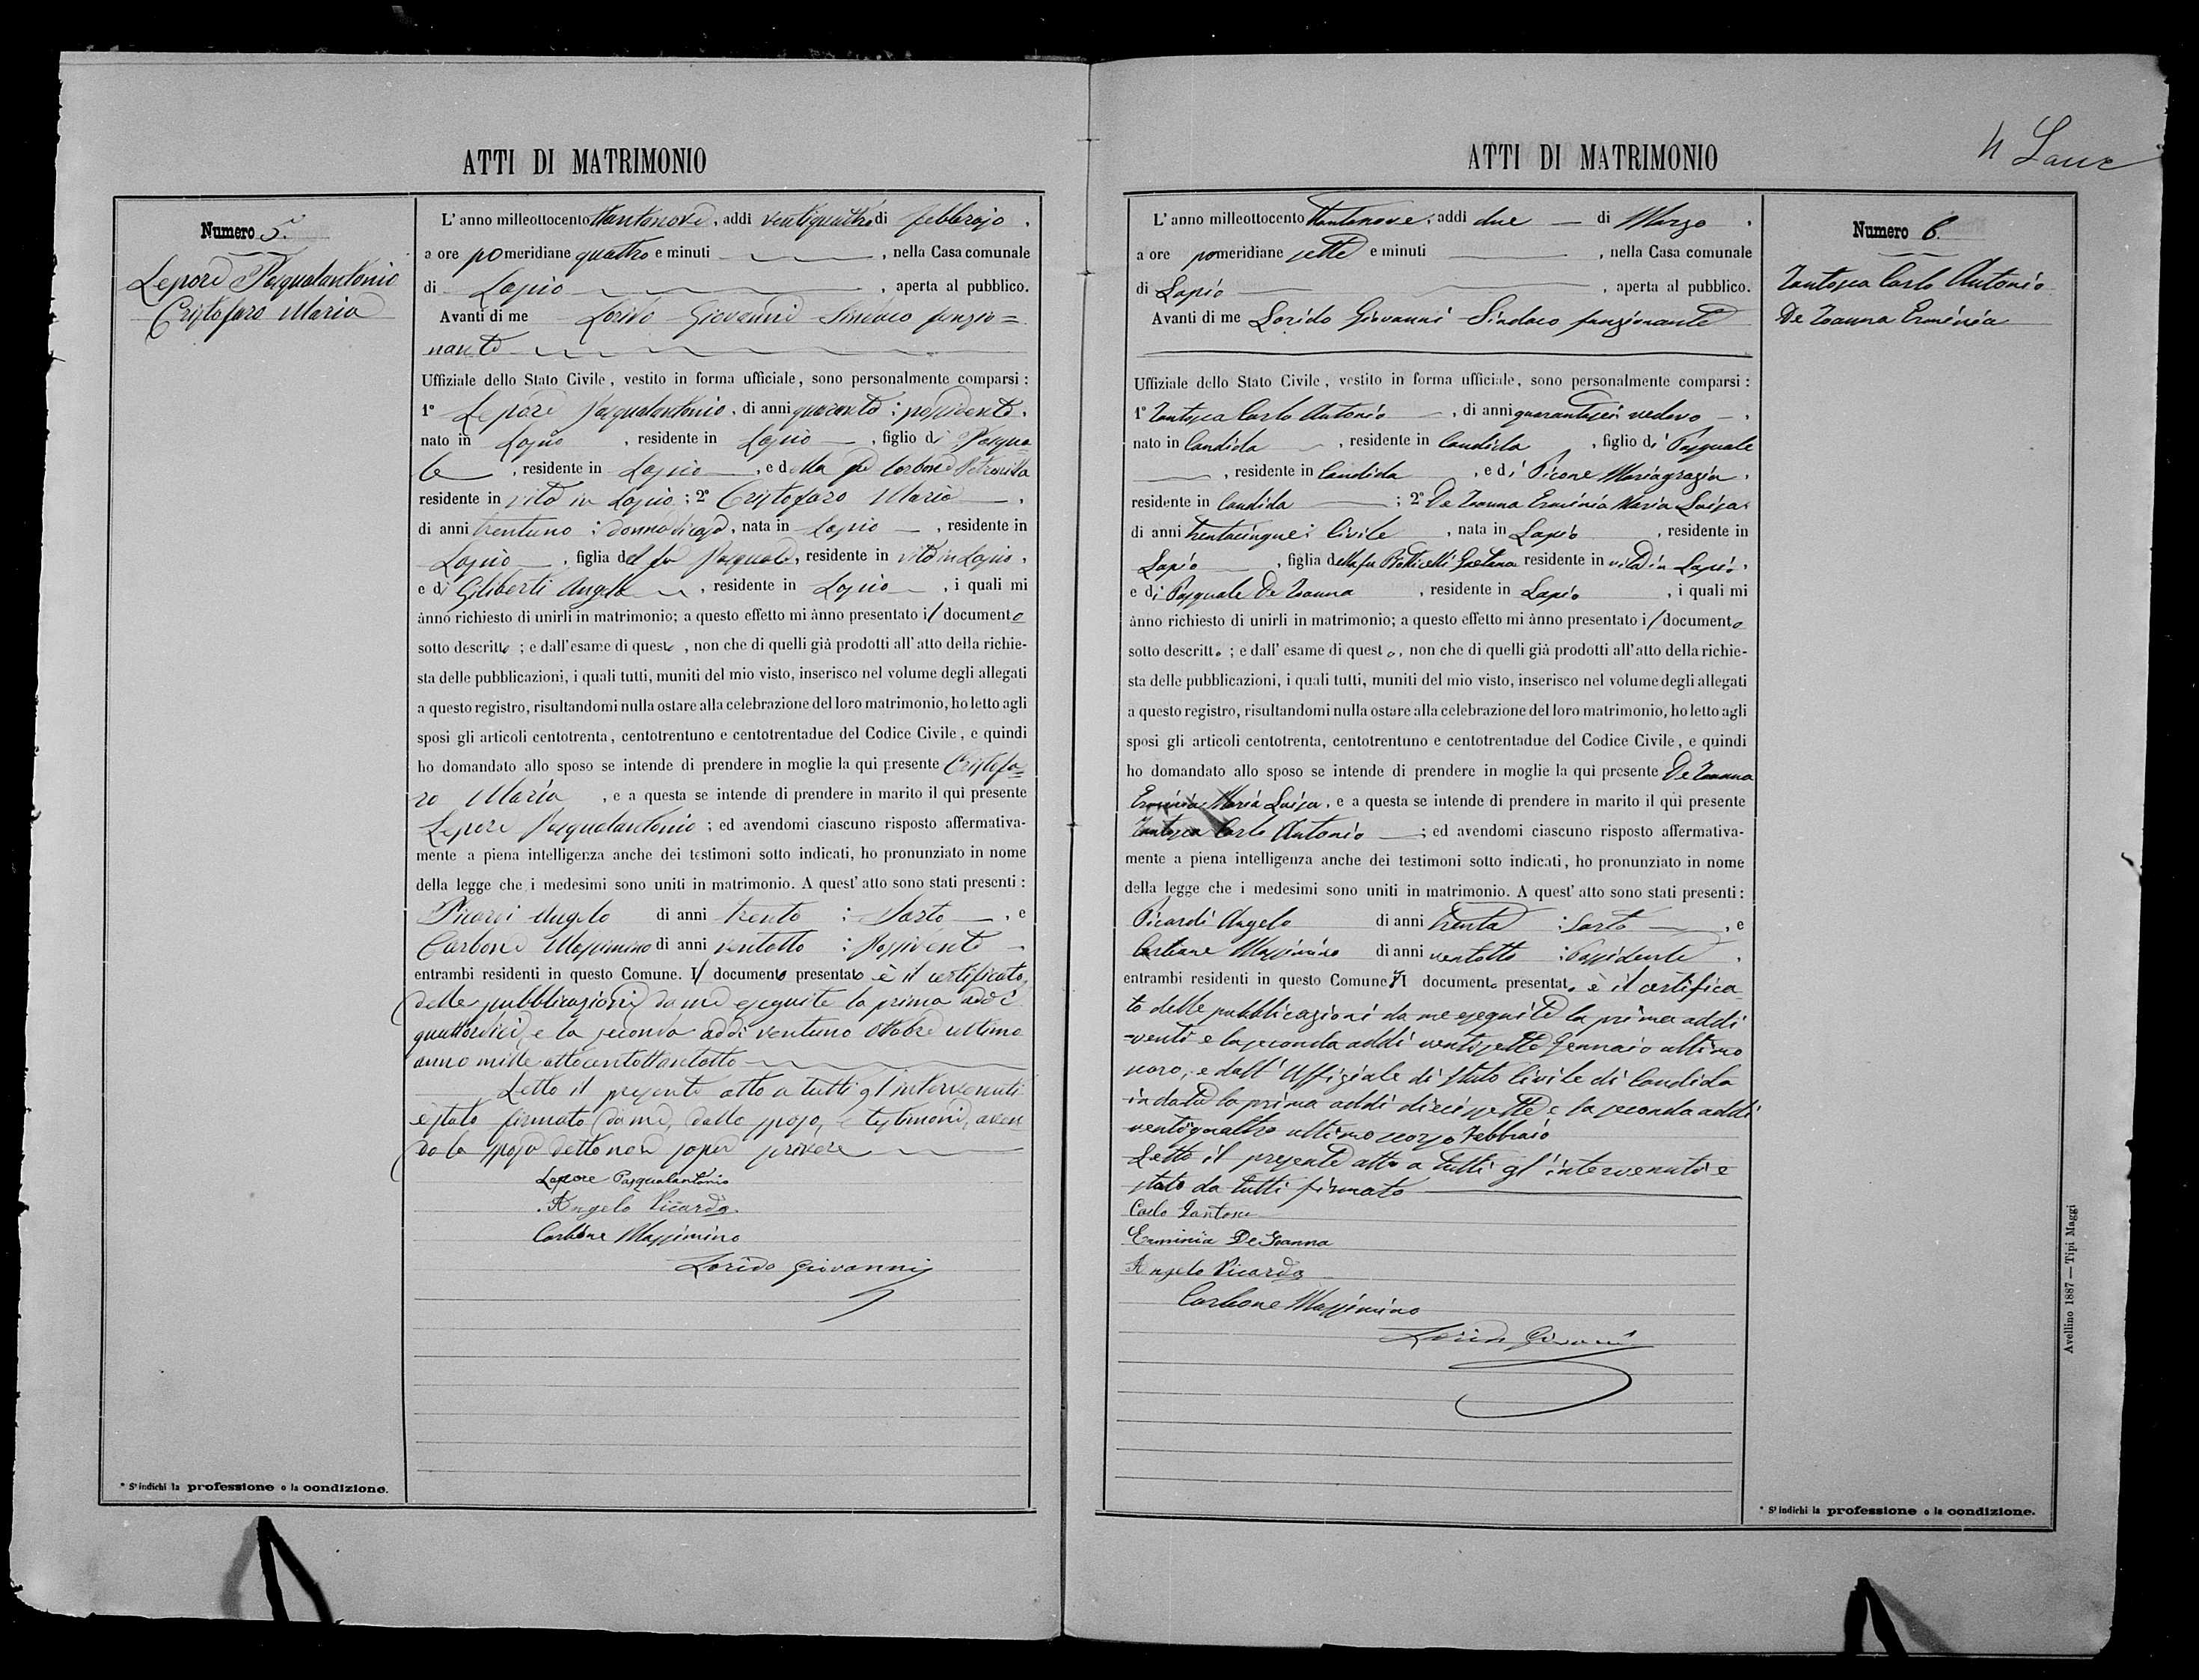 ATTI DI MATRIMONIO
Numero 5.
Lepore Pasqualantonio
Cristofaro Maria
L'anno milleottocentottantanove, addi ventiquattro di febbrajo,
a ore pomeridiane quattro e minuti , nella Casa comunale
di Lapio , aperta al pubblico.
Avanti di me Lorido Giovanni Sindaco funzio=
nante
Uffiziale dello Stato Civile, vestito in forma ufficiale, sono personalmente comparsi:
1° Lepore Pasqualantonio, di anni quaranta; possidente,
nato in Lapio, residente in Lapio, figlio di Pasqua
le, residente in Lapio, e della fu Carbone Petronilla
residente in vita in Lapio; 2° Cristofaro Maria,
di anni trentuno; donna di casa, nata in Lapio, residente in
Lapio, figlia del fu Pasquale, residente in vita in Lapio,
e di Giliberti Angela, residente in Lapio, i quali mi
ànno richiesto di unirli in matrimonio; a questo effetto mi ànno presentato il documento
sotto descritto; e dall'esame di questo, non che di quelli già prodotti all'atto della richie-
sta delle pubblicazioni, i quali tutti, muniti del mio visto, inserisco nel volume degli allegati
a questo registro, risultandomi nulla ostare alla celebrazione del loro matrimonio, ho letto agli
sposi gli articoli centotrenta, centotrentuno e centotrentadue del Codice Civile, e quindi
ho domandato allo sposo se intende di prendere in moglie la qui presente Cristofa=
ro Maria, e a questa se intende di prendere in marito il qui presente
Lepore Pasqualantonio; ed avendomi ciascuno risposto affermativa-
mente a piena intelligenza anche dei testimoni sotto indicati, ho pronunziato in nome
della legge che i medesimi sono uniti in matrimonio. A quest'atto sono stati presenti:
Picardi Angelo di anni trenta; Sarto, e
Carbone Massimino di anni ventotto; Possidente,
entrambi residenti in questo Comune. Il documento presentato è il certificato
delle pubblicazioni da me eseguite la prima addi
quattordici, e la seconda addi ventuno Ottobre ultimo
anno mille ottocentottantotto
Letto il presente atto a tutti gl'intervenuti
è stato firmato da me, dallo sposo, e testimoni, aven
do la sposa detto non saper scrivere
Lepore Pasqualantonio
Angelo Picardi
Carbone Massimino
Lorido Giovanni
* S'indichi la professione o la condizione.
4 
ATTI DI MATRIMONIO
Numero 6.
Carlo Antonio
De Joanna Erminia
L'anno milleottocentottantanove, addi due di Marzo,
a ore pomeridiane sette e minuti , nella Casa comunale
di Lapio , aperta al pubblico.
Avanti di me Lorido Giovanni Sindaco funzionante
Uffiziale dello Stato Civile, vestito in forma ufficiale, sono personalmente comparsi:
1° Carlo Antonio, di anni vedovo,
nato in Candida, residente in Candida, figlio di Pasquale
, residente in Candida, e di Picone Mariagrazia,
residente in Candida; 2° De Joanna Erminia Maria Luisa,
di anni trentacinque; Civile, nata in Lapio, residente in
Lapio, figlia della fu Botticelli Gaetana residente in vita in Lapio,
e di Pasquale De Joanna, residente in Lapio, i quali mi
ànno richiesto di unirli in matrimonio; a questo effetto mi ànno presentato il documento
sotto descritto; e dall'esame di questo, non che di quelli già prodotti all'atto della richie-
sta delle pubblicazioni, i quali tutti, muniti del mio visto, inserisco nel volume degli allegati
a questo registro, risultandomi nulla ostare alla celebrazione del loro matrimonio, ho letto agli
sposi gli articoli centotrenta, centotrentuno e centotrentadue del Codice Civile, e quindi
ho domandato allo sposo se intende di prendere in moglie la qui presente De Joanna
Erminia Maria Luisa, e a questa se intende di prendere in marito il qui presente
Carlo Antonio; ed avendomi ciascuno risposto affermativa-
mente a piena intelligenza anche dei testimoni sotto indicati, ho pronunziato in nome
della legge che i medesimi sono uniti in matrimonio. A quest'atto sono stati presenti:
Picardi Angelo di anni trenta; Sarto, e
Carbone Massimino di anni ventotto; Possidente,
entrambi residenti in questo Comune. Il documento presentato è il certifica
to delle pubblicazioni da me eseguite la prima addi
venti e la seconda addi ventisette Gennaio ultimo
, e dall'Uffiziale di Stato Civile di Candida
in data la prima addi diecisette e la seconda addi
ventiquattro ultimo scorso Febbraio
Letto il presente atto a tutti gl'intervenuti è
stato da tutti firmato
Carlo
Erminia De Joanna
Angelo Picardi
Carbone Massimino
Lorido Giovanni
* S'indichi la professione o la condizione.
Avellino 1887 — Tipi Maggi